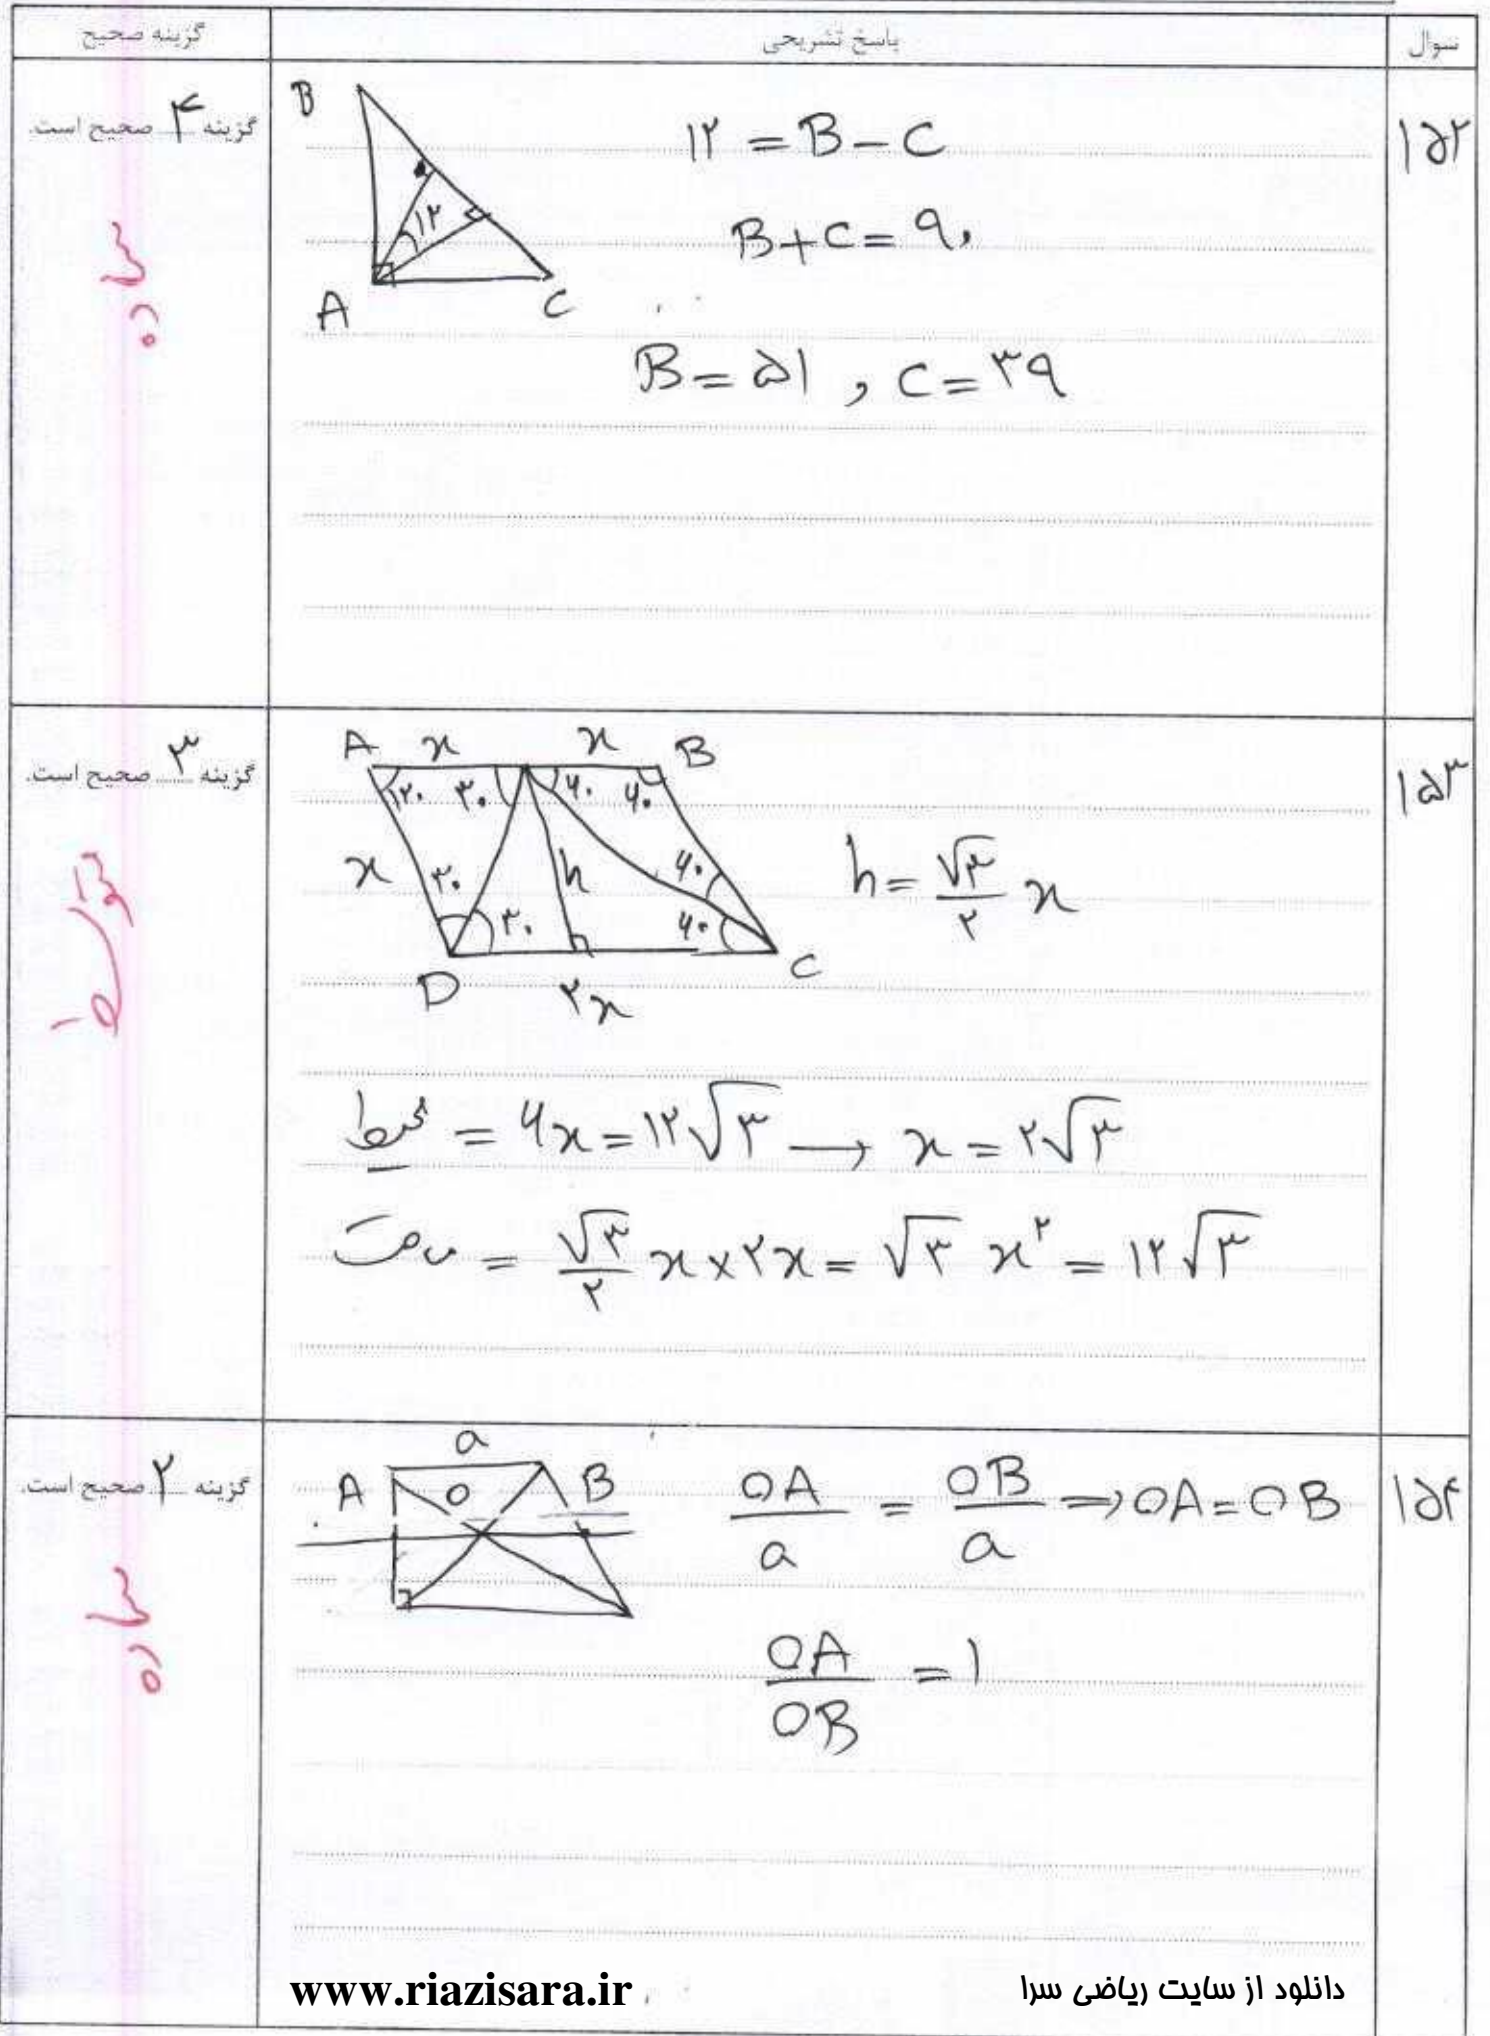 سوال
پاسخ تشریحی
گزینه صحیح
۱۵۲
B
A
C
۱۲
۱۲ = B - C
B + C = ۹۰
B = ۵۱ , C = ۳۹
گزینه ۴ صحیح است.
ساده
۱۵۳
A x x B
۱۲۰ ۳۰ ۶۰ ۶۰
x ۳۰ h ۶۰
۳۰ ۶۰
D ۲x C
h = √۳/۲ x
محیط = ۶x = ۱۲√۳ → x = ۲√۳
مساحت = √۳/۲ x × ۲x = √۳ x^۲ = ۱۲√۳
گزینه ۳ صحیح است.
متوسط
۱۵۴
a
A O B
OA/a = OB/a ⇒ OA = OB
OA/OB = ۱
گزینه ۲ صحیح است.
ساده
www.riazisara.ir
دانلود از سایت ریاضی سرا